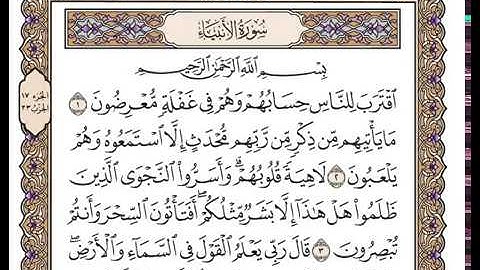 سُورَةُ الأَنبِيَاءِ
بِسْمِ ٱللَّهِ ٱلرَّحْمَٰنِ ٱلرَّحِيمِ
ٱقْتَرَبَ لِلنَّاسِ حِسَابُهُمْ وَهُمْ فِى غَفْلَةٍ مُّعْرِضُونَ ١
مَا يَأْتِيهِم مِّن ذِكْرٍ مِّن رَّبِّهِم مُّحْدَثٍ إِلَّا ٱسْتَمَعُوهُ وَهُمْ
يَلْعَبُونَ ٢ لَاهِيَةً قُلُوبُهُمْ ۗ وَأَسَرُّوا۟ ٱلنَّجْوَى ٱلَّذِينَ
ظَلَمُوا۟ هَلْ هَٰذَآ إِلَّا بَشَرٌ مِّثْلُكُمْ ۖ أَفَتَأْتُونَ ٱلسِّحْرَ وَأَنتُمْ
تُبْصِرُونَ ٣ قَالَ رَبِّى يَعْلَمُ ٱلْقَوْلَ فِى ٱلسَّمَآءِ وَٱلْأَرْضِ ۖ
الجزء ١٧
الحزب ٣٣